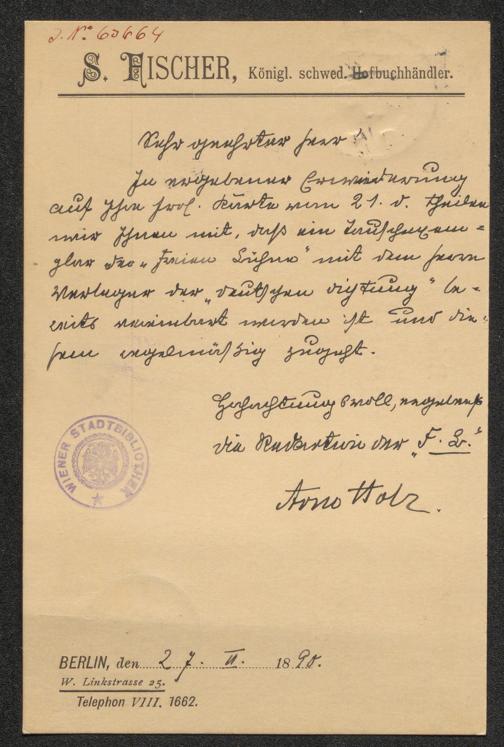 J. N. 60664
S. FISCHER, Königl. schwed. Hofbuchhändler.
Sehr geehrter Herr!
In ergebener Erwiederung
auf Ihre frdl. Karte vom 21. d. theilen
wir Ihnen mit, daß ein Tauschexem=
plar der „Freien Bühne" mit dem Herrn
Verleger der „Deutschen Dichtung" be=
reits vereinbart worden ist und die=
sem regelmäßig zugeht.
Hochachtungsvoll, ergebenst
die Redaktion der „F. B."
Arno Holz.
WIENER STADTBIBLIOTHEK
BERLIN, den 27. II. 1890.
W. Linkstrasse 25.
Telephon VIII. 1662.